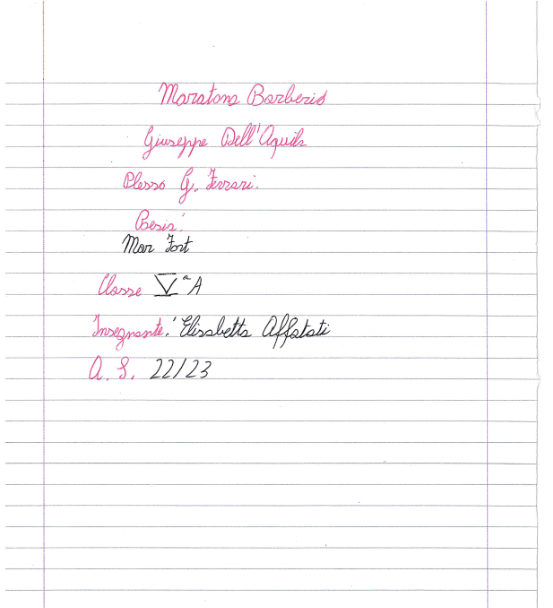 Maratona Barberio
Giuseppe Dell'Aquila
Plesso G. Ferrari.
Poesia:
Mar Fort
Classe Vª A
Insegnante: Elisabetta Affatati
A. S. 22/23